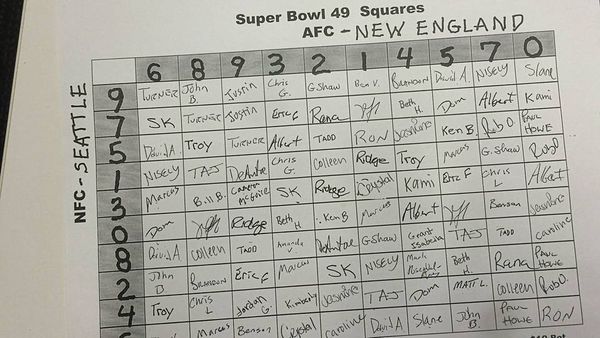 Super Bowl 49 Squares
AFC - NEW ENGLAND
NFC - SEATTLE
6 8 9 3 2 1 4 5 7 0
9 TURNER John B. Justin Chris G. G.Shaw Ben V. BRANDON David A. NISELY Slane
7 SK TURNER Justin ERIC F Rana Beth H. Dom Albert Kami
5 David A. Troy TURNER Albert TADD RON Jasmine Ken B. Rob O. PAUL HOWE
1 NISELY TAJ DeAntae Chris G. Colleen Ridge Troy Marcus G. Shaw Rob O.
3 Marcus Bill B. Cameron McGuire SK Ridge Crystal Kami Eric F Chris L Albert
0 Dom Ridge Beth H Ken B Marcus Albert Benson Jasmine
8 David A Colleen TADD Amanda DeAntae G.Shaw Isabella TAJ TADD caroline
2 John B. BRANDON Eric F Marcus SK NISELY Beth H. Rana PAUL HOWE
4 Troy Chris L Jordan G. Kimberly Jasmine TAJ Dom MATT L. Colleen Rob O.
Marcus Benson Crystal caroline David A Slane John B. PAUL HOWE RON